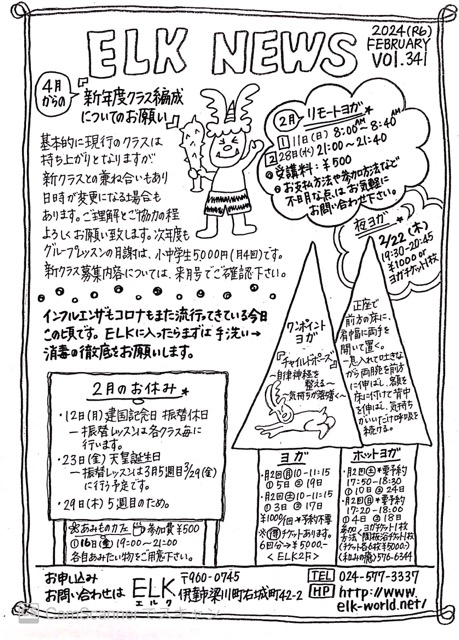 ELK NEWS
2024(R6)
FEBRUARY
VOL.341
4月からの
『新年度クラス編成
についてのお願い』
基本的に現行のクラスは
持ち上がりとなりますが
新クラスとの兼ね合いもあり
日時が変更になる場合も
あります。ご理解とご協力の程
よろしくお願い致します。次年度も
グループレッスンの月謝は、小中学生5000円(月4回)です。
新クラス募集内容については、来月号でご確認下さい。
2月 リモートヨガ
1 11日(日) 8:00AM~8:40AM
2 28日(水) 21:00~21:40
受講料:¥500
お支払方法や参加方法など
不明な点は、お気軽に
お問い合わせ下さい。
夜ヨガ
2/22(木)
19:30-20:45
¥1000 or
ヨガチケット1枚
インフルエンザもコロナもまた流行してきている今日
この頃です。ELKに入ったらまずは手洗い→
消毒の徹底をお願いします。
ワンポイント
ヨガ
『チャイルドポーズ』
~自律神経を
整える~
~気持ちが落着く~
正座で
前方の床に、
肩幅に両手を
開いて置く。
一息入れて吐きな
がら両腕を前方
に伸ばし、額を
床に付けて背中
を伸ばし、気持ち
がいいだけ呼吸を
続ける。
2月のお休み
・12日(月)建国記念日 振替休日
―振替レッスンは各クラス毎に
行います。
・23日(金)天皇誕生日
―振替レッスンは3月5週目3/29(金)
に行う予定です。
・29日(木)5週目のため。
あみものカフェ 参加費¥500
①16日(金)19:00~21:00
各自あみたい物をご用意下さい。
ヨガ
・月2回(月)10-11:15
①5日 ②19日
・月2回(土)10-11:15
①3日 ②17日
¥1000/1回 *予約不要
※(月)チケットあります。
6回分→¥5000.-
<ELK2F>
ホットヨガ
・月2回(土)*要予約
17:50-18:30
①10日 ②24日
・月2回(日)*要予約
17:20-18:00
①4日 ②18日
参加 ヨガチケット1枚
方法
(チケット6枚¥5000.-)
(和みの湯)576-6344
お申し込み
お問い合わせは
ELK
エルク
〒960-0745
伊達市梁川町右城町42-2
TEL 024-577-3337
HP http://www.
elk-world.net/
CamScanner